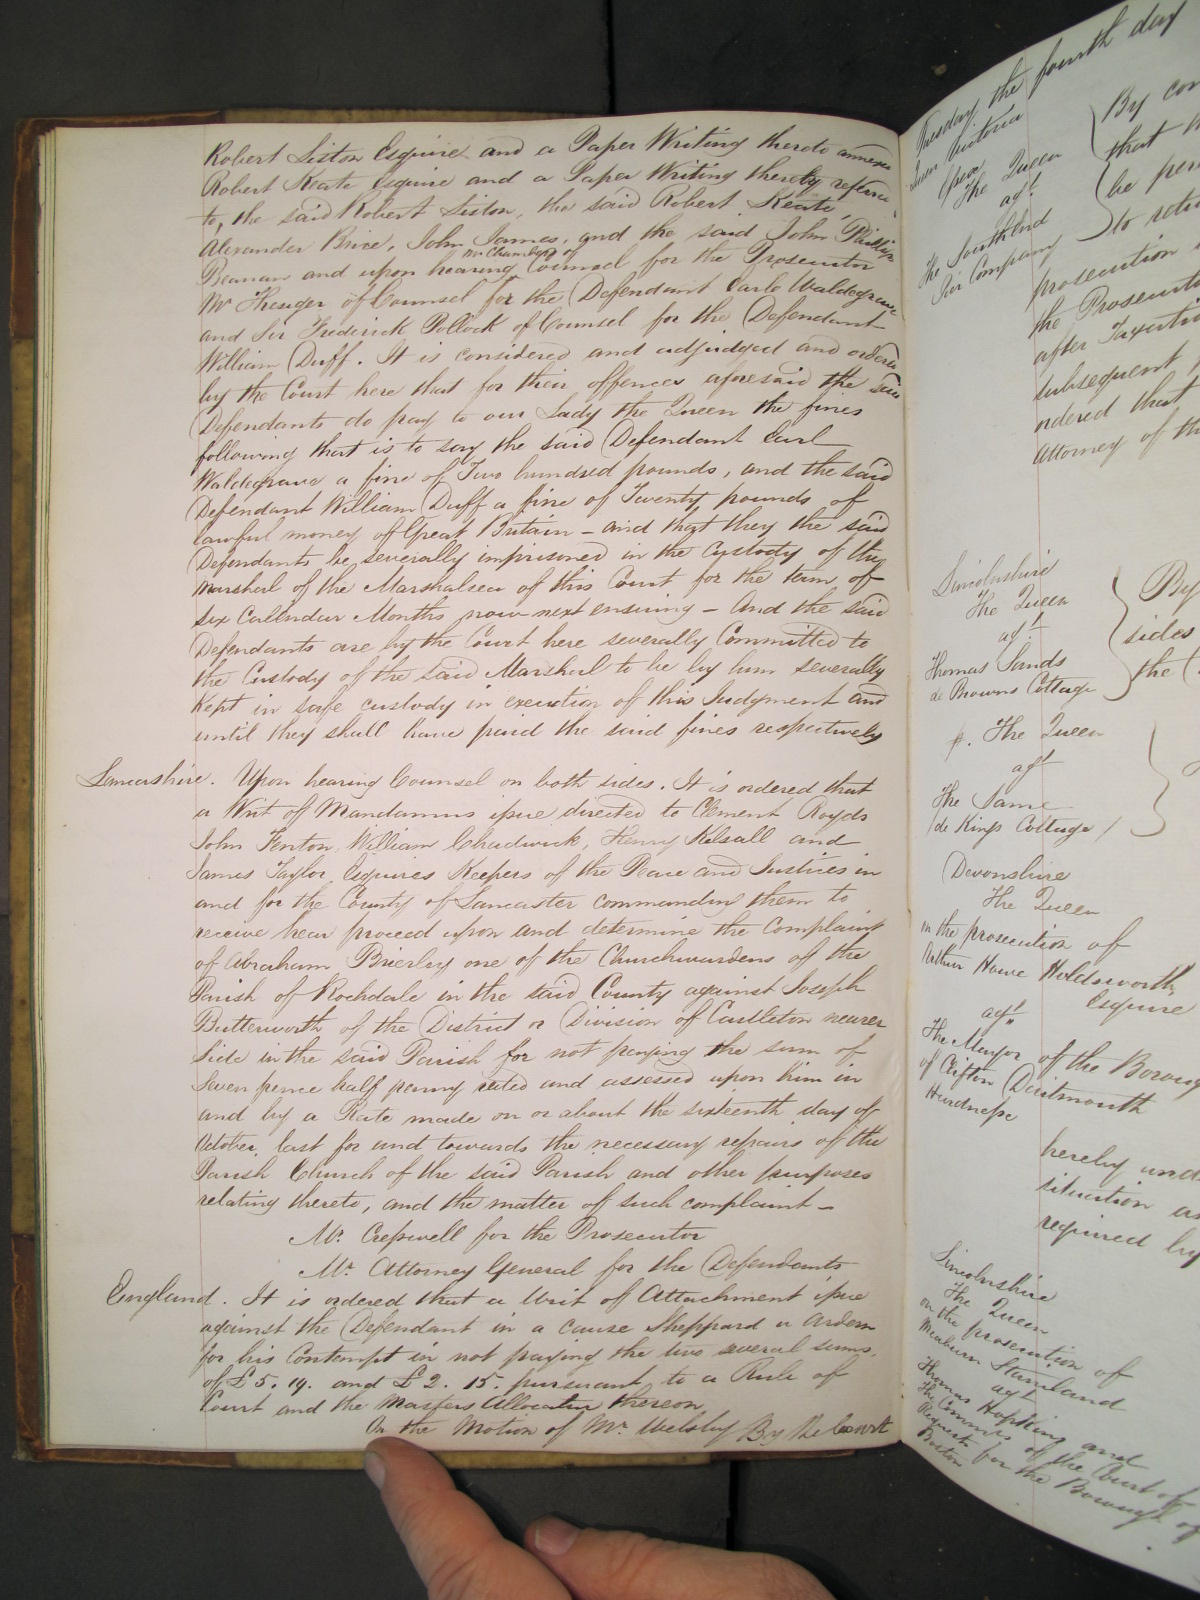 Robert Liston Esquire and a Paper Writing thereto annexed
Robert Keate Esquire and a Paper Writing thereby referred
to, the said Robert Liston, the said Robert Keate,
Alexander Brice, John James, and the said John Phillips
Beaman and upon hearing Mr Chambers of Counsel for the Prosecutor
Mr Thesiger of Counsel for the Defendant Earle Waldegrave
and Sir Frederick Pollock of Counsel for the Defendant
William Duff. It is considered and adjudged and ordered
by the Court here that for their offences aforesaid the said
Defendants do pay to our Lady the Queen the fines
following that is to say the said Defendant Earl
Waldegrave a fine of Two hundred pounds, and the said
Defendant William Duff a fine of Twenty pounds of
lawful money of Great Britain – and that they the said
Defendants be severally imprisoned in the Custody of the
Marshal of the Marshalsea of this Court for the term of
six Calendar Months now next ensuing – And the said
Defendants are by the Court here severally Committed to
the Custody of the said Marshal to be by him severally
Kept in safe custody in execution of this Judgment and
until they shall have paid the said fines respectively
Lancashire. Upon hearing Counsel on both sides. It is ordered that
a Writ of Mandamus issue directed to Clement Royds
John Fenton, William Chadwick, Henry Kelsall and
James Taylor, Esquires Keepers of the Peace and Justices in
and for the County of Lancaster commanding them to
receive hear proceed upon and determine the Complaint
of Abraham Brierley one of the Churchwardens of the
Parish of Rochdale in the said County against Joseph
Butterworth of the District or Division of Castleton nearer
Side in the said Parish for not paying the sum of
Seven pence half penny rated and assessed upon him in
and by a Rate made on or about the sixteenth day of
October last for and towards the necessary repairs of the
Parish Church of the said Parish and other purposes
relating thereto, and the matter of such complaint –
Mr. Cresswell for the Prosecutor
Mr. Attorney General for the Defendants
England. It is ordered that a Writ of Attachment issue
against the Defendant in a cause Sheppard v Ardern
for his Contempt in not paying the two several sums
of £5. 19. and £2. 15. pursuant to a Rule of
Court and the Masters Allocatur thereon
On the Motion of Mr. Welsby By the Court
Tuesday the fourth day
Queen Victoria
The Queen
agt
The Southend
Pier Company
By con
that
be per
to
prosecution
the Prosecuto
after Taxation
subsequent
ordered that
Attorney of th
Lincolnshire
The Queen
agt
Thomas Sands
de Browns Cottage
By
sides
the
The Queen
agt
The Same
(de Kings Cottage)
Devonshire
The Queen
on the prosecution of
Arthur Howe Holdsworth
Esquire
agt
The Mayor of the Borough
of Clifton Dartmouth
Hardness
hereby und
situation as
required by
Lincolnshire
The Queen
on the prosecution of
Meaburn Staniland
agt
Thomas Hopkins and
the Commrs of the Court of
Requests for the Borough of
Boston